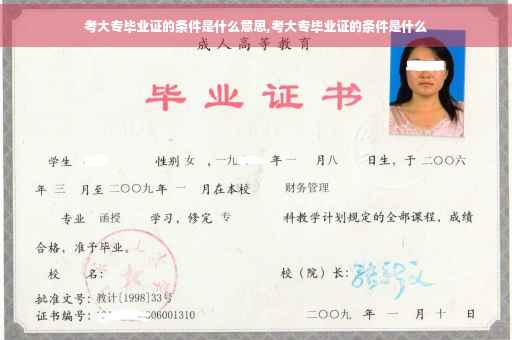 考大专毕业证的条件是什么意思,考大专毕业证的条件是什么
成人高等教育
毕业证书
学生 性别 女 ,一九 年 一 月八 日生，于 二〇〇六
年 三 月至 二〇〇九 年 一 月在本校 财务管理
专业 函授 学习，修完 专 科教学计划规定的全部课程，成绩
合格，准予毕业。
校 名： 校（院）长：
批准文号：教计[1998]33号
证书编号： 06001310 二〇〇九 年 一 月 十 日